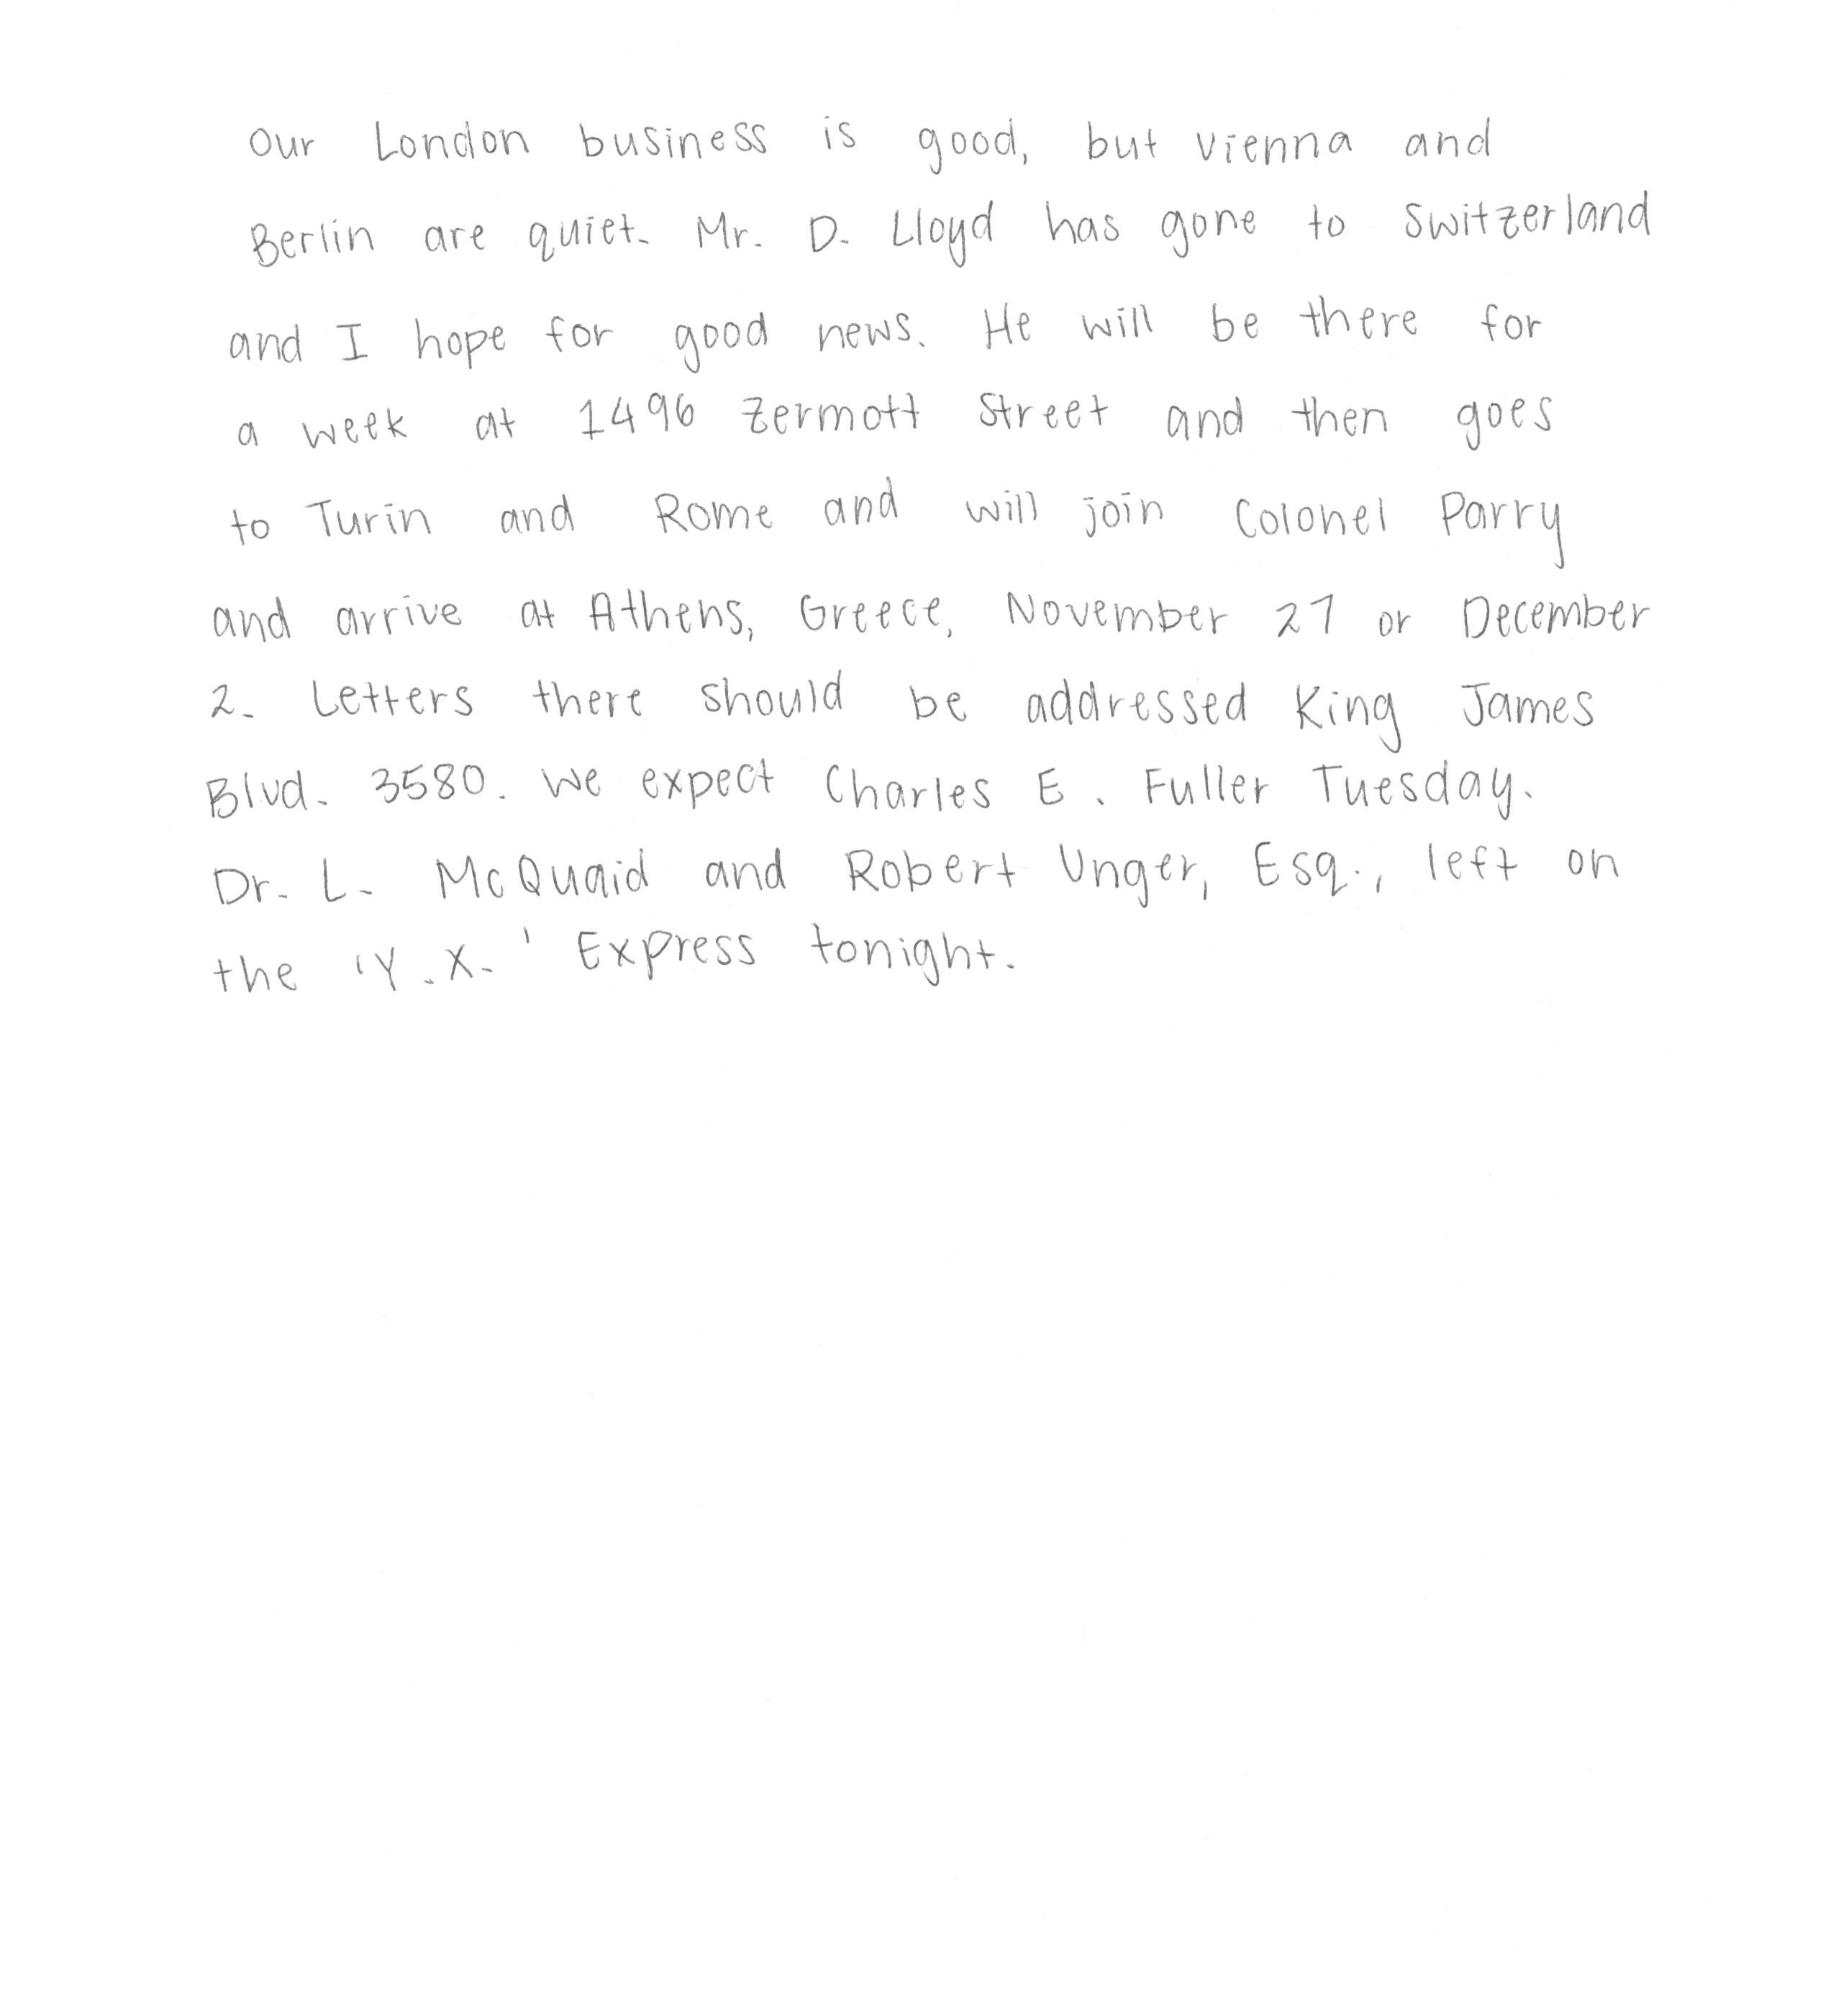 Our London business is good, but Vienna and
Berlin are quiet. Mr. D. Lloyd has gone to Switzerland
and I hope for good news. He will be there for
a week at 1496 Zermott Street and then goes
to Turin and Rome and will join Colonel Parry
and arrive at Athens, Greece, November 27 or December
2. Letters there should be addressed King James
Blvd. 3580. We expect Charles E. Fuller Tuesday.
Dr. L. McQuaid and Robert Unger, Esq., left on
the 'Y.X.' Express tonight.